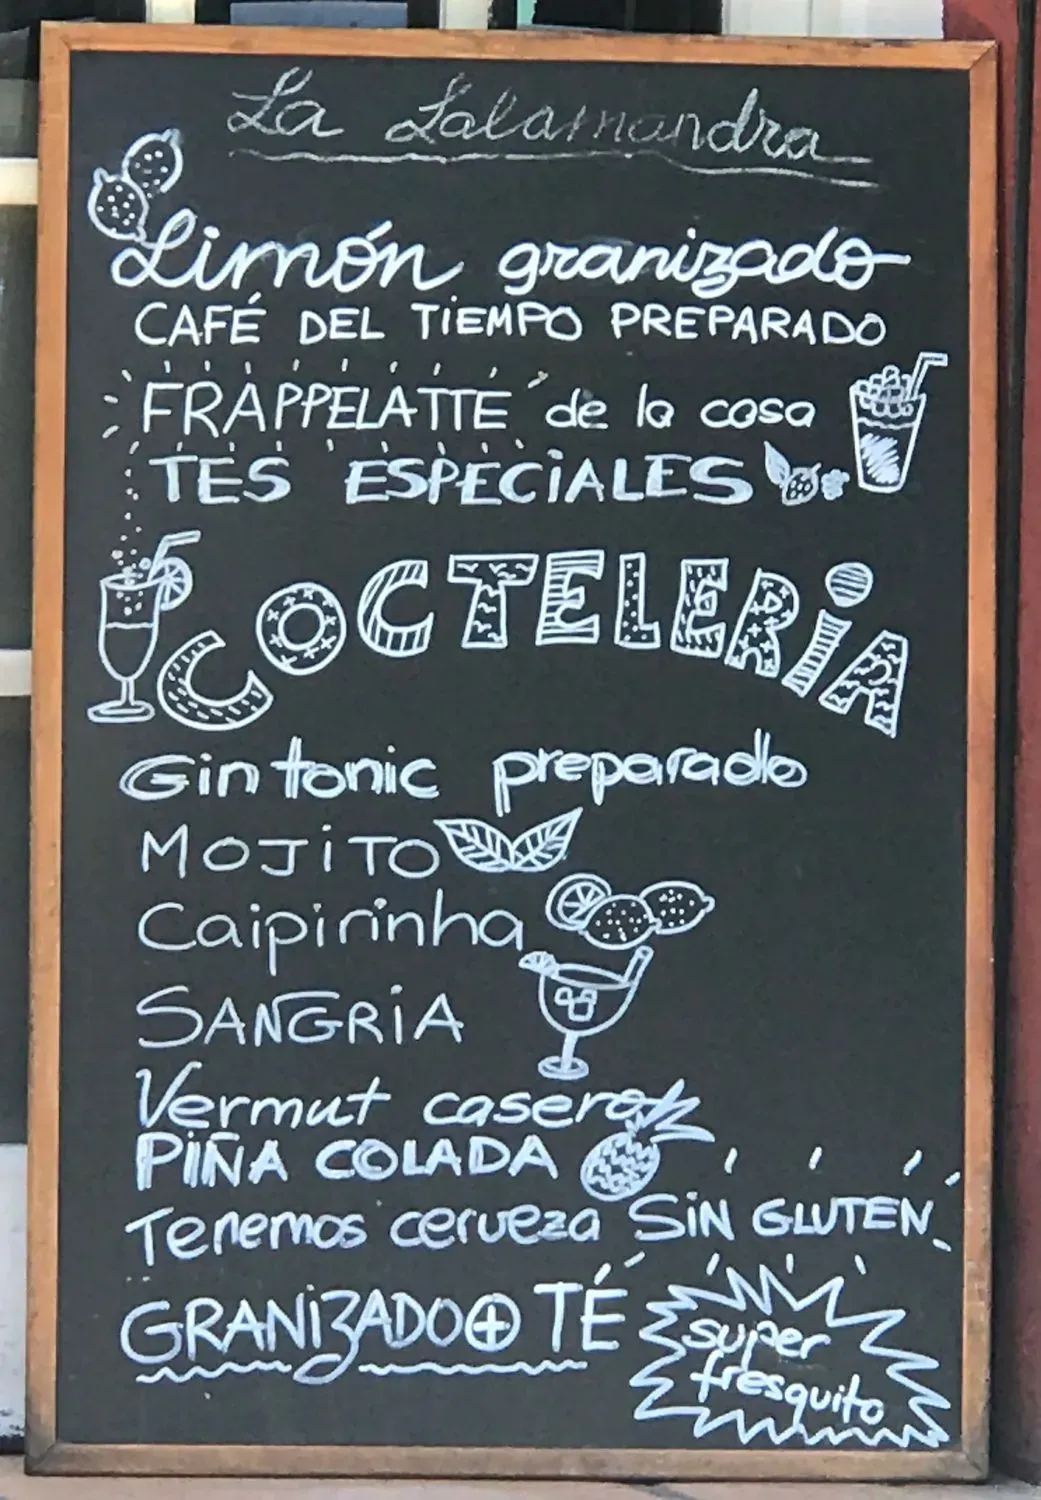 La Salamandra
Limón granizado
CAFÉ DEL TIEMPO PREPARADO
FRAPPELATTE de la casa
TES ESPECIALES
COCTELERIA
Gin tonic preparado
MOJITO
Caipirinha
SANGRIA
Vermut casero
PIÑA COLADA
Tenemos cerveza SIN GLUTEN
GRANIZADO + TÉ
super
fresquito